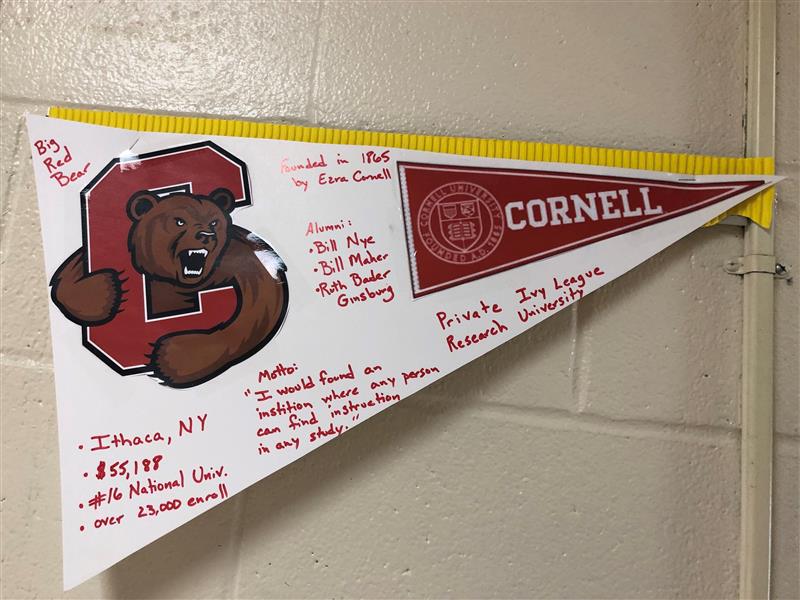 Big
Red
Bear
C
Founded in 1865
by Ezra Cornell
Alumni:
• Bill Nye
• Bill Maher
• Ruth Bader
Ginsburg
CORNELL UNIVERSITY
FOUNDED A.D. 1865
CORNELL
Private Ivy League
Research University
Motto:
"I would found an
instition where any person
can find instruction
in any study."
• Ithaca, NY
• $55,188
• #16 National Univ.
• over 23,000 enroll